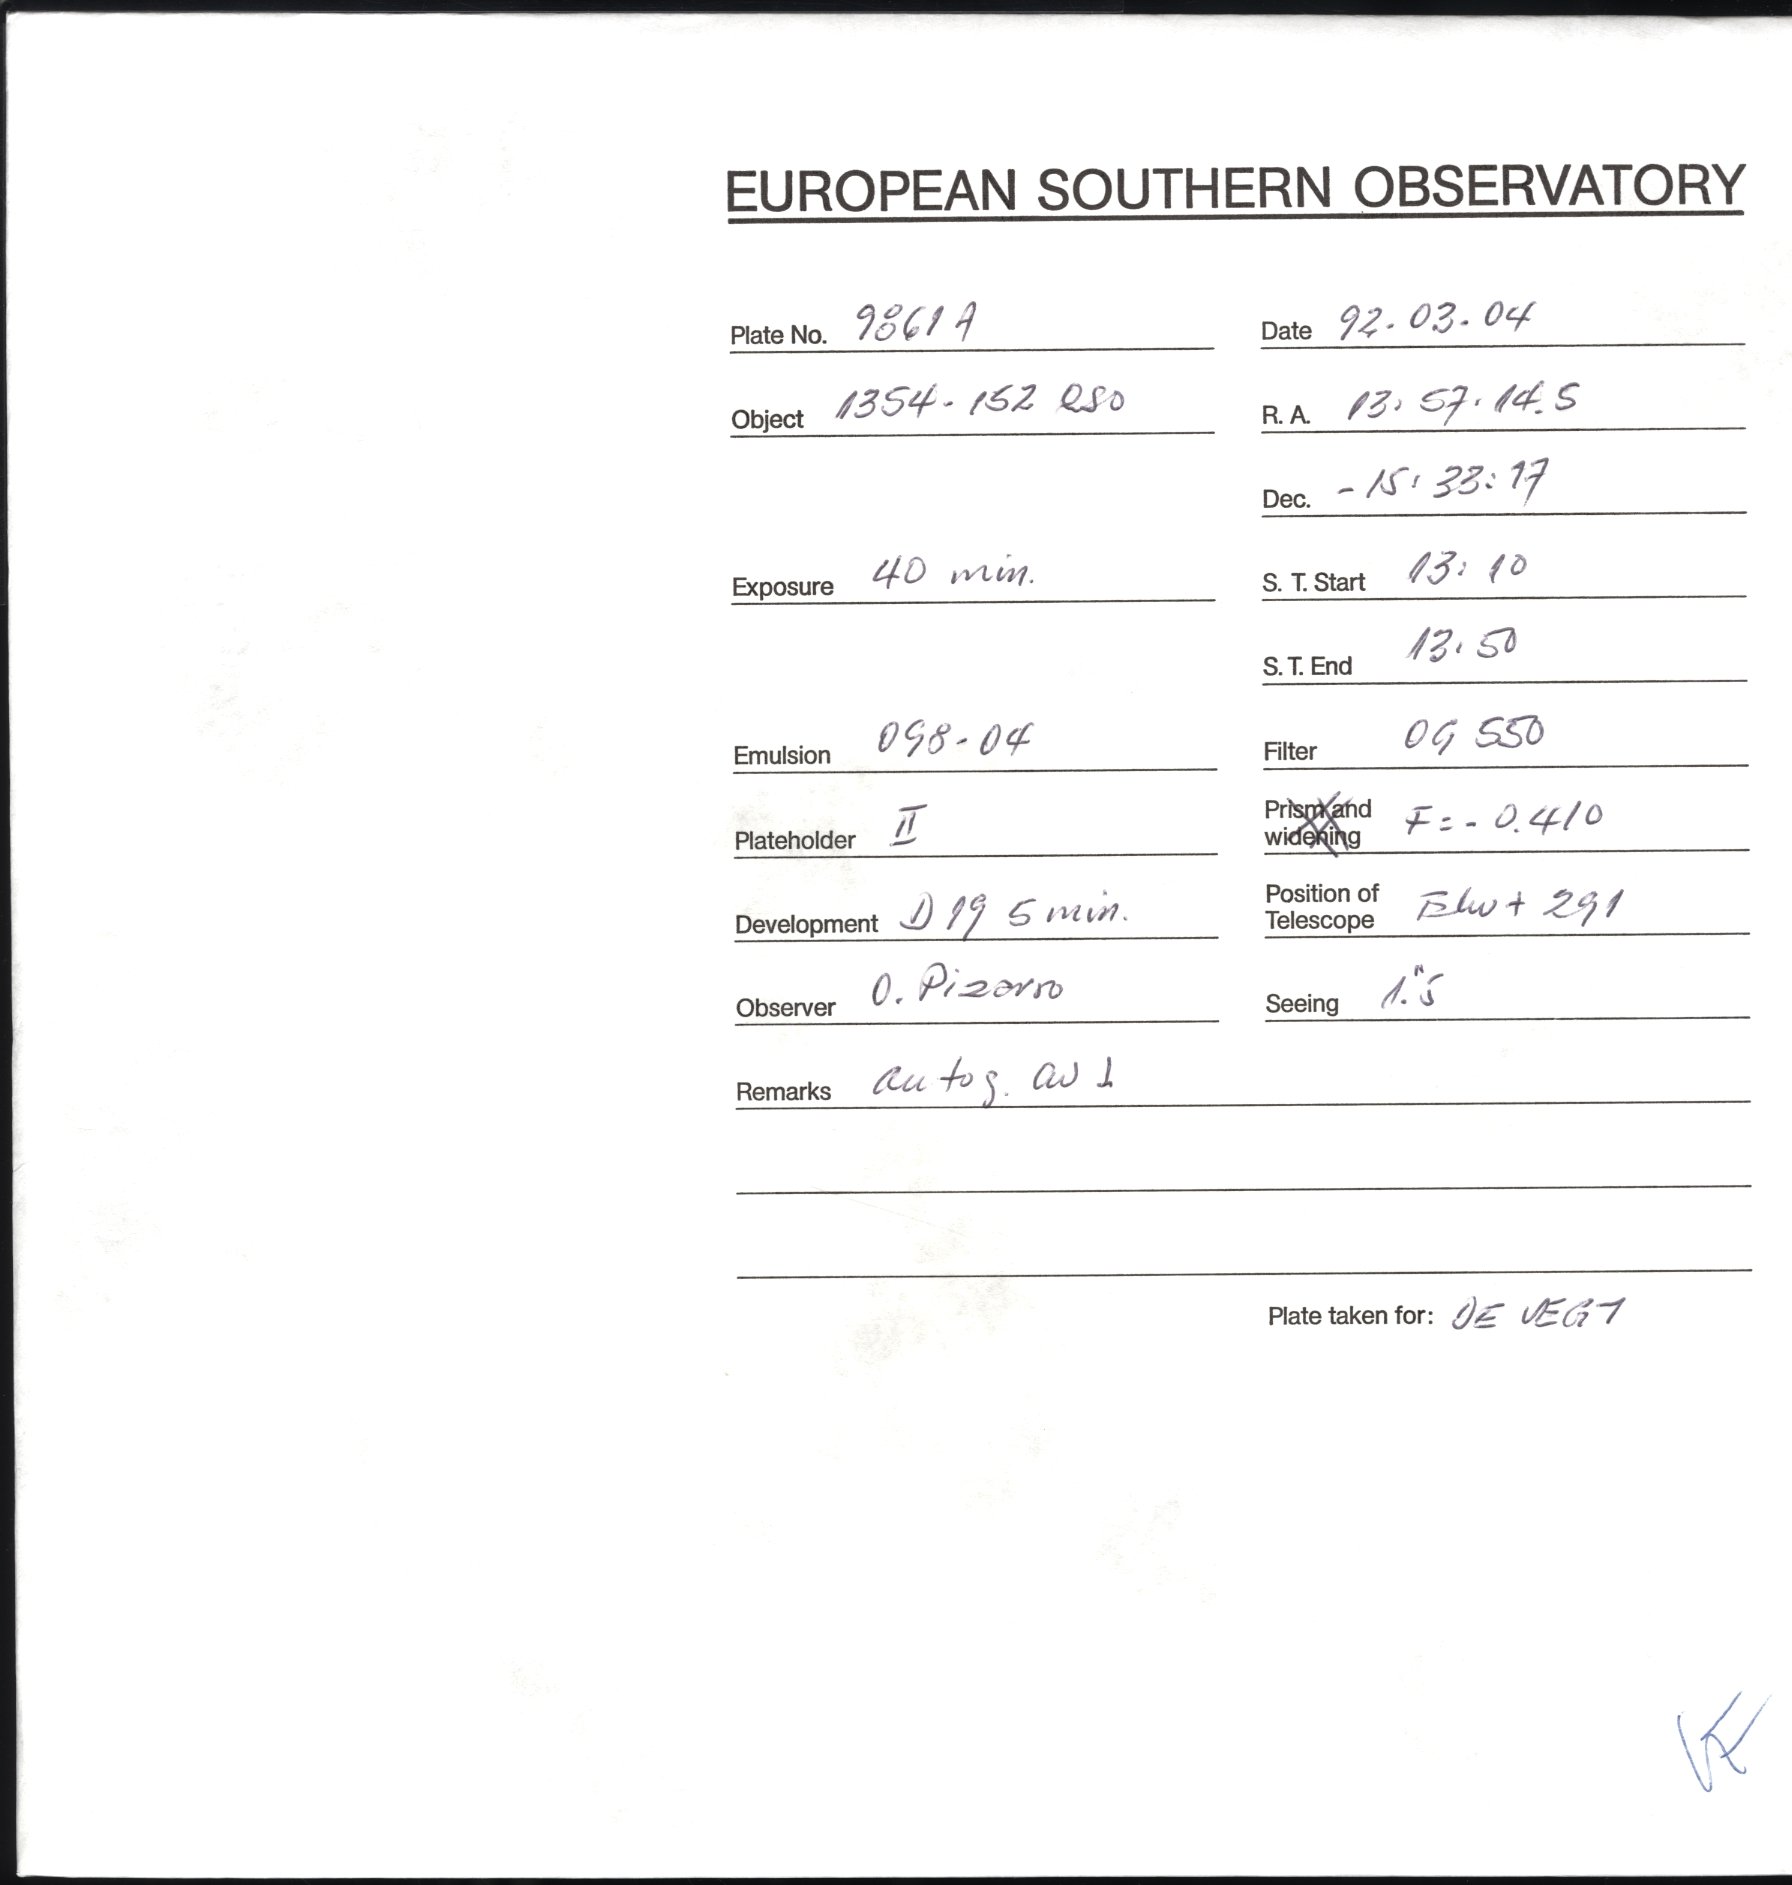 EUROPEAN SOUTHERN OBSERVATORY
Plate No. 9861 A
Date 92.03.04
Object 1354-152 QSO
R. A. 13:57:14.5
Dec. -15:33:17
Exposure 40 min.
S. T. Start 13:10
S. T. End 13:50
Emulsion 098-04
Filter OG 550
Plateholder II
Prism and
widening F=-0.410
Development D19 5 min.
Position of
Telescope + 291
Observer O. Pizarro
Seeing 1."5
Remarks autog.
Plate taken for: DE VEGT